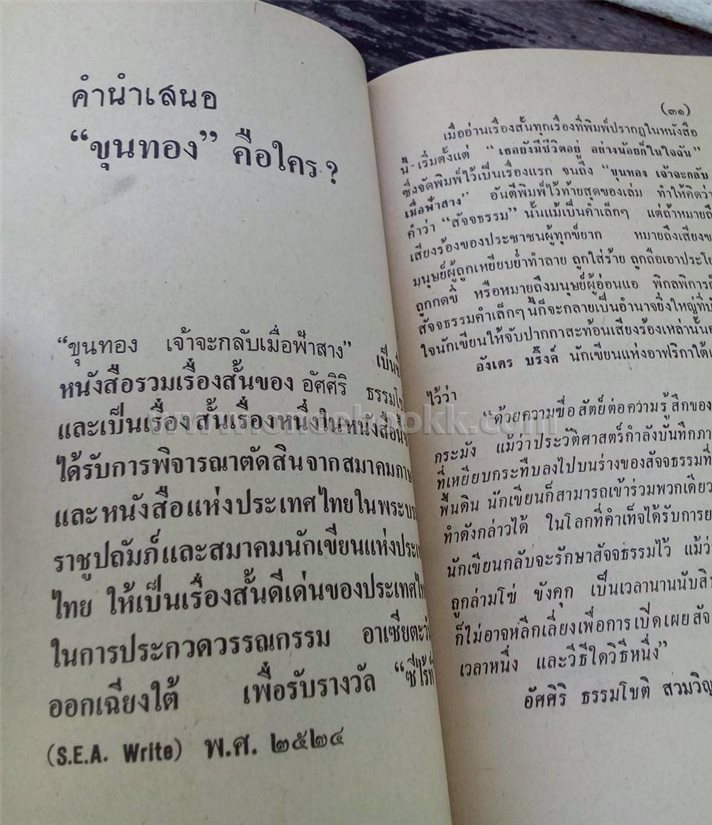 คำนำเสนอ
“ขุนทอง” คือใคร ?
“ขุนทอง เจ้าจะกลับเมื่อฟ้าสาง”
หนังสือรวมเรื่องสั้นของ อัศศิริ
และเป็นเรื่องสั้นเรื่องหนึ่งในหนังสือ
ได้รับการพิจารณาตัดสินจากสมาคม
และหนังสือแห่งประเทศไทยในพระ
ราชูปถัมภ์และสมาคมนักเขียนแห่ง
ไทย ให้เป็นเรื่องสั้นดีเด่นของประเทศ
ในการประกวดวรรณกรรม อาเซียตะ
ออกเฉียงใต้ เพื่อรับรางวัล “ซีไร้ท์
(S.E.A. Write) พ.ศ. ๒๕๒๔
(๓๑)
เมื่ออ่านเรื่องสั้นทุกเรื่องที่พิมพ์ปรากฏในหนังสือ
นี้ เริ่มตั้งแต่ “เธอยังมีชีวิตอยู่ อย่างน้อยก็ในใจฉัน”
ซึ่งจัดพิมพ์ไว้เป็นเรื่องแรก จนถึง “ขุนทอง เจ้าจะกลับ
เมื่อฟ้าสาง” อันตีพิมพ์ไว้ท้ายสุดของเล่ม ทำให้คิดว่า
คำว่า “สัจจธรรม” นั้นแม้เป็นคำเล็กๆ แต่ถ้าหมายถึง
เสียงร้องของประชาชนผู้ทุกข์ยาก หมายถึงเสียง
มนุษย์ผู้ถูกเหยียบย่ำทำลาย ถูกใส่ร้าย ถูกถือเอา
ถูกกดขี่ หรือหมายถึงมนุษย์ผู้อ่อนแอ พิกลพิการ
สัจจธรรมคำเล็กๆ นี้ก็จะกลายเป็นอำนาจยิ่งใหญ่ที่
ใจนักเขียนให้จับปากกาสะท้อนเสียงร้องเหล่านั้น
อังเดร บริงค์ นักเขียนแห่งอาฟริกาใต้
ไว้ว่า
“ด้วยความซื่อสัตย์ต่อความรู้สึกของ
กระมัง แม้ว่าประวัติศาสตร์กำลังบันทึก
ที่เหยียบกระทืบลงไปบนร่างของสัจจธรรมที่
พื้นดิน นักเขียนก็สามารถเข้าร่วมพวกเดียว
ทำดังกล่าวได้ ในโลกที่คำเท็จได้รับการ
นักเขียนกลับจะรักษาสัจจธรรมไว้ แม้ว่า
ถูกล่ามโซ่ ขังคุก เป็นเวลานานนับ
ก็ไม่อาจหลีกเลี่ยงเพื่อการเปิดเผย
เวลาหนึ่ง และวิธีใดวิธีหนึ่ง”
อัศศิริ ธรรมโชติ